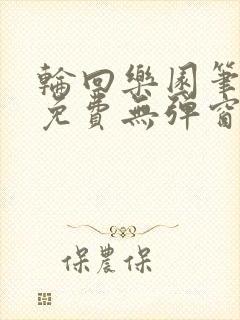 輪回樂園筆
免費無彈窗
保農保